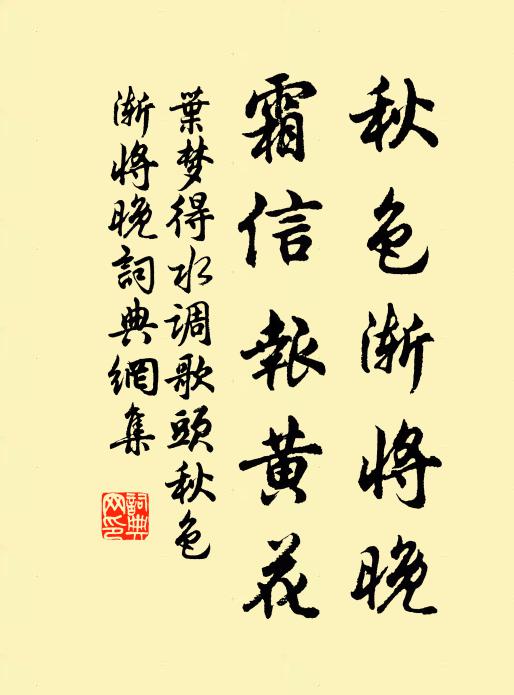 秋色渐將晚
霜信報黄花
葉梦得水调歌頭秋色
渐將晚詞典網集
詞典
网印